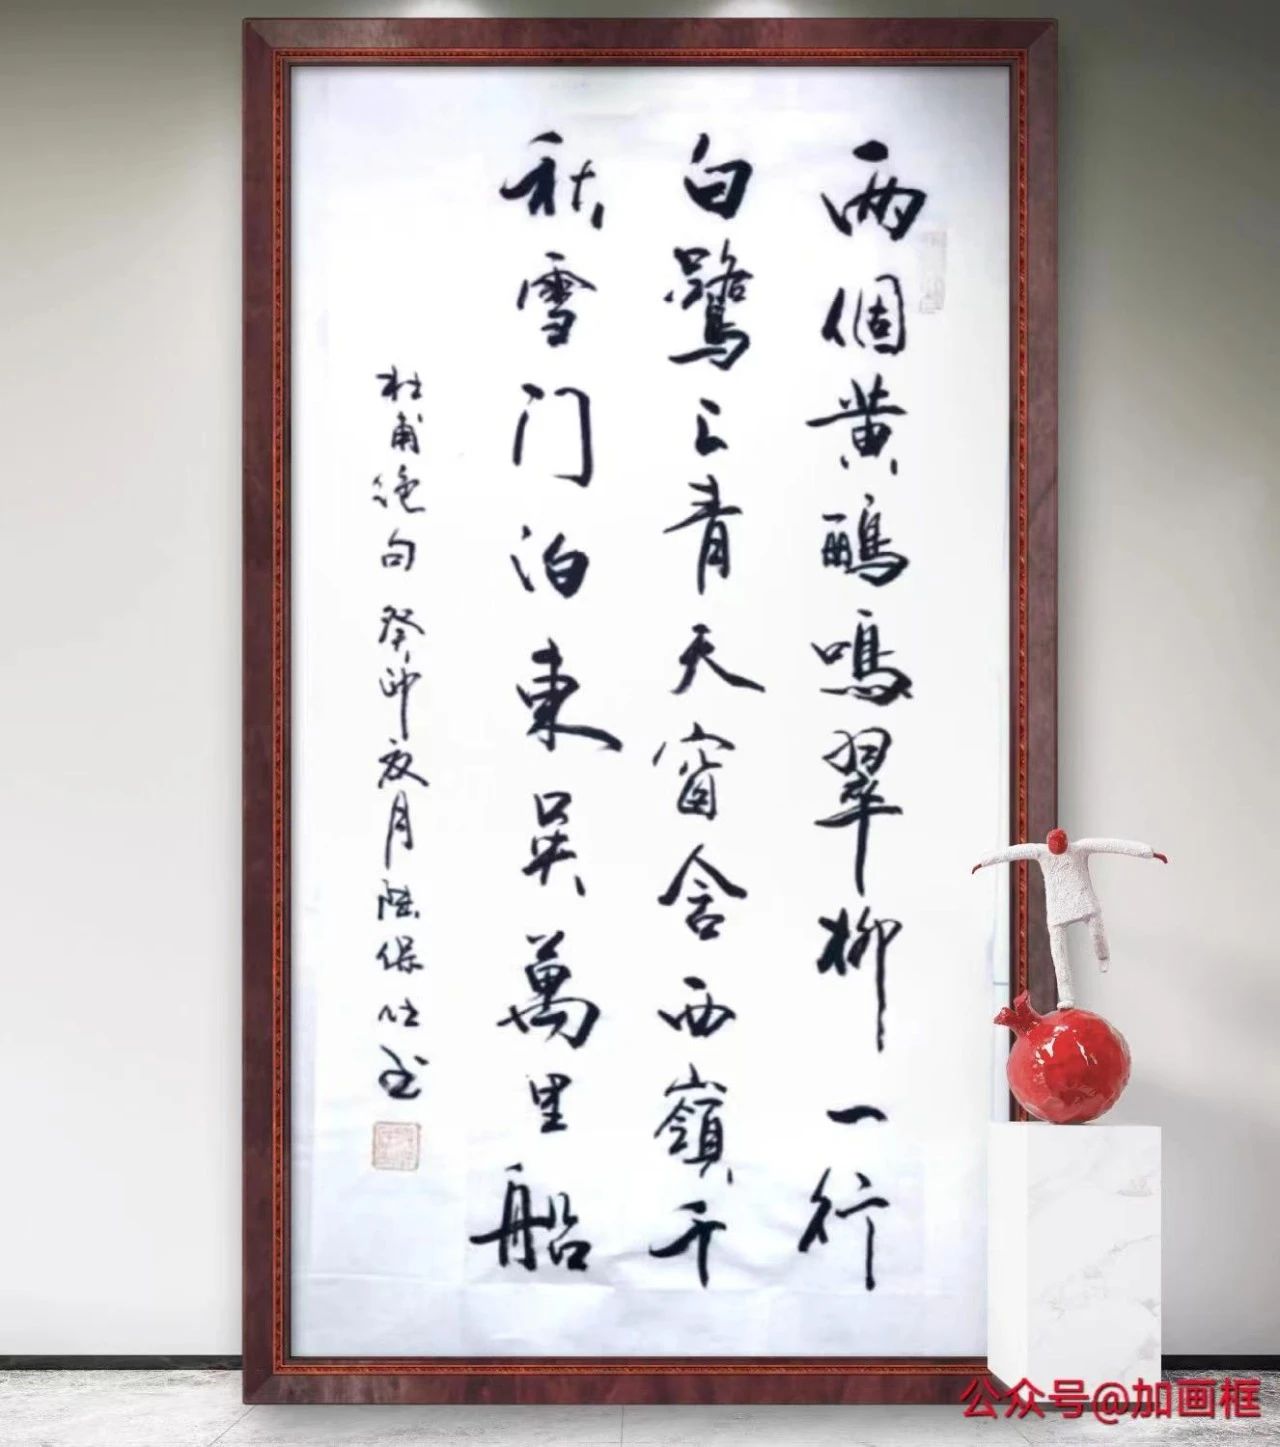 两個黄鸝鳴翠柳一行
白鷺上青天窗含西嶺千
秋雪门泊東吴萬里船
杜甫绝句 癸卯夏月陸保仕书
公众号@加画框